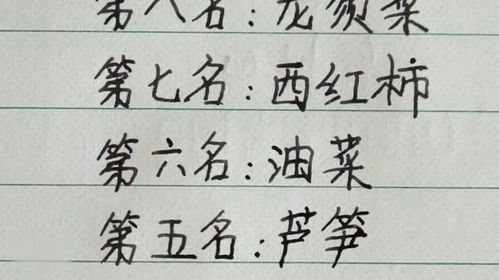 第八名：龙须菜
第七名：西红柿
第六名：油菜
第五名：芦笋